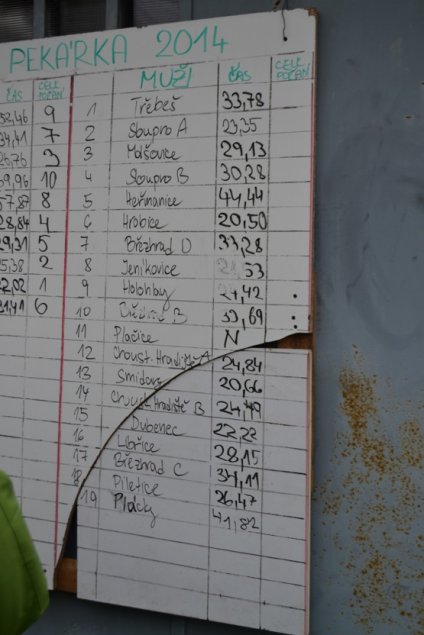 PEKÁRKA 2014
ČAS CELK. POŘADÍ MUŽI ČAS CELK. POŘADÍ
58,46 9 1 Třebeš 33,78
34,41 7 2 Stoupro A 23,35
25,76 3 3 Máslovice 29,13
59,96 10 4 Stoupro B 30,28
57,87 8 5 Heřmanice 44,44
28,84 4 6 Hrobice 20,50
29,31 5 7 Březhrad D 33,28
25,38 2 8 Jeníkovice 53
22,02 1 9 Holohlavy 24,42
31,41 6 10 B 39,69
11 Plačice N
12 Choust. Hradiště A 24,84
13 Smidary 20,66
14 Choust. Hradiště B 24,49
15 Dubenec 22,22
16 Libřice 28,15
17 Březhrad C 34,11
18 Piletice 26,47
19 Plácky 41,82